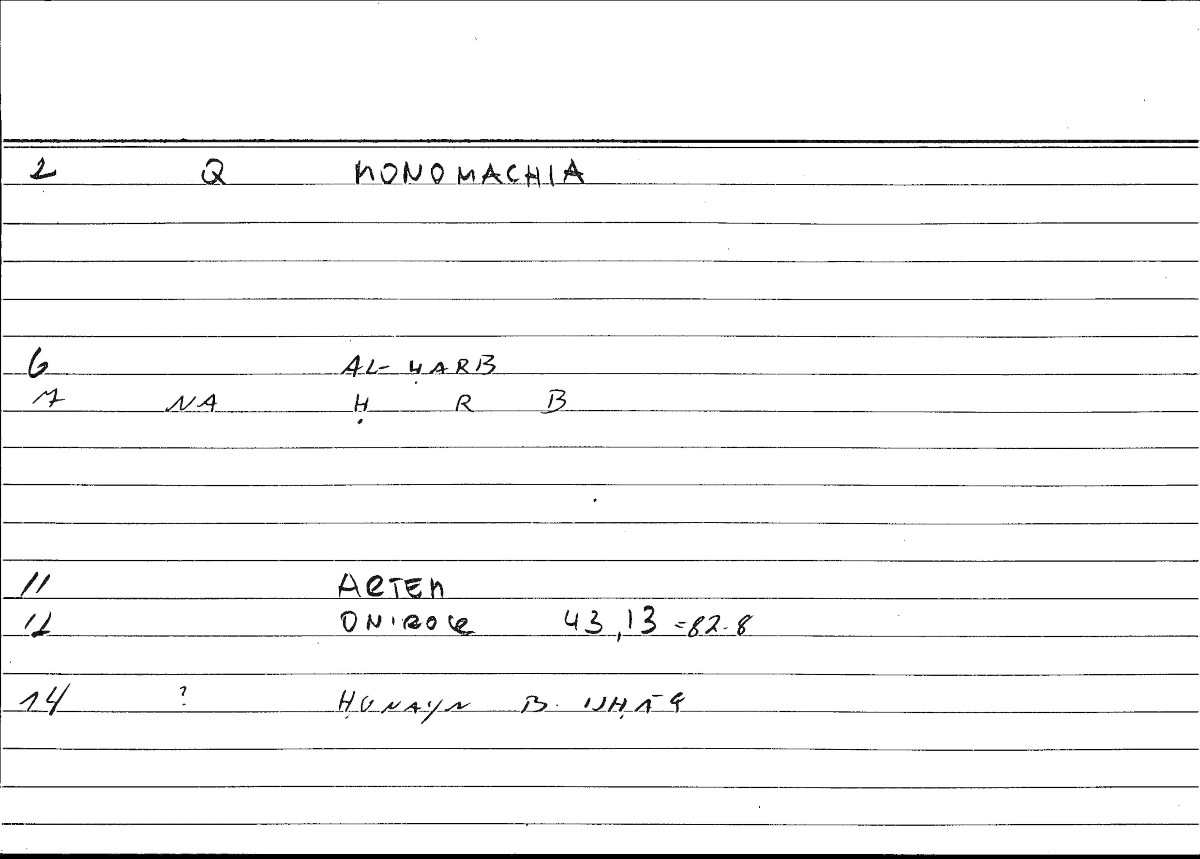 2 Q MONOMACHIA
6 AL-ḤARB
7 NA Ḥ R B
11 ARTEM
12 ONIROCR 43,13 =82.8
14 ? ḤUNAYN B. ISḤĀQ